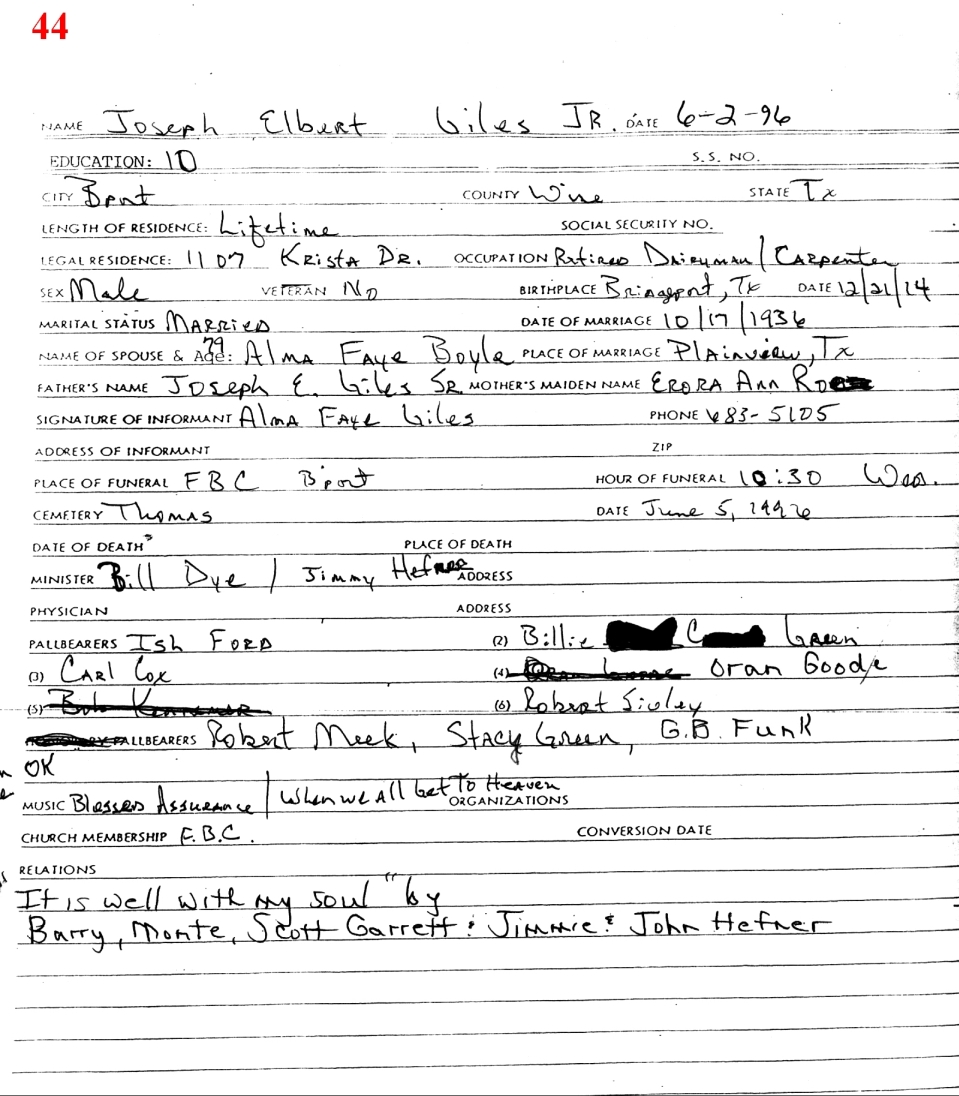 44
NAME Joseph Elbert Giles JR. DATE 6-2-96
EDUCATION: 10 S.S. NO.
CITY Bport COUNTY Wise STATE Tx
LENGTH OF RESIDENCE: Lifetime SOCIAL SECURITY NO.
LEGAL RESIDENCE: 1107 Krista Dr. OCCUPATION Retired Dairyman / Carpenter
SEX Male VETERAN No BIRTHPLACE Bridgeport, Tx DATE 12/21/14
MARITAL STATUS Married DATE OF MARRIAGE 10/17/1936
NAME OF SPOUSE & Age: 79 Alma Faye Boyle PLACE OF MARRIAGE Plainview, Tx
FATHER'S NAME Joseph E. Giles Sr MOTHER'S MAIDEN NAME Erora Ann
SIGNATURE OF INFORMANT Alma Faye Giles PHONE 683-5105
ADDRESS OF INFORMANT ZIP
PLACE OF FUNERAL FBC Bport HOUR OF FUNERAL 10:30 Wed.
CEMETERY Thomas DATE June 5, 1996
DATE OF DEATH PLACE OF DEATH
MINISTER Bill Dye / Jimmy Hefner ADDRESS
PHYSICIAN ADDRESS
PALLBEARERS Ish Ford (2) Billie C Green
(3) Carl Cox (4) Oran Goode
(5) Bob Kennemer (6) Robert Sivley
PALLBEARERS Robert Meek, Stacy Green, G.B. Funk
OK
MUSIC Blessed Assurance / When we All Get To Heaven ORGANIZATIONS
CHURCH MEMBERSHIP F.B.C. CONVERSION DATE
RELATIONS
It is well with my soul" by
Barry, Monte, Scott Garrett & Jimmie & John Hefner